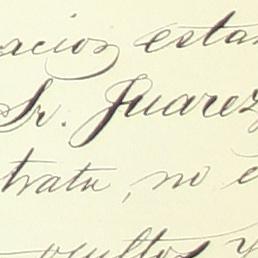 acios esta
Sr. Juarez
trata, no e
ocultos y